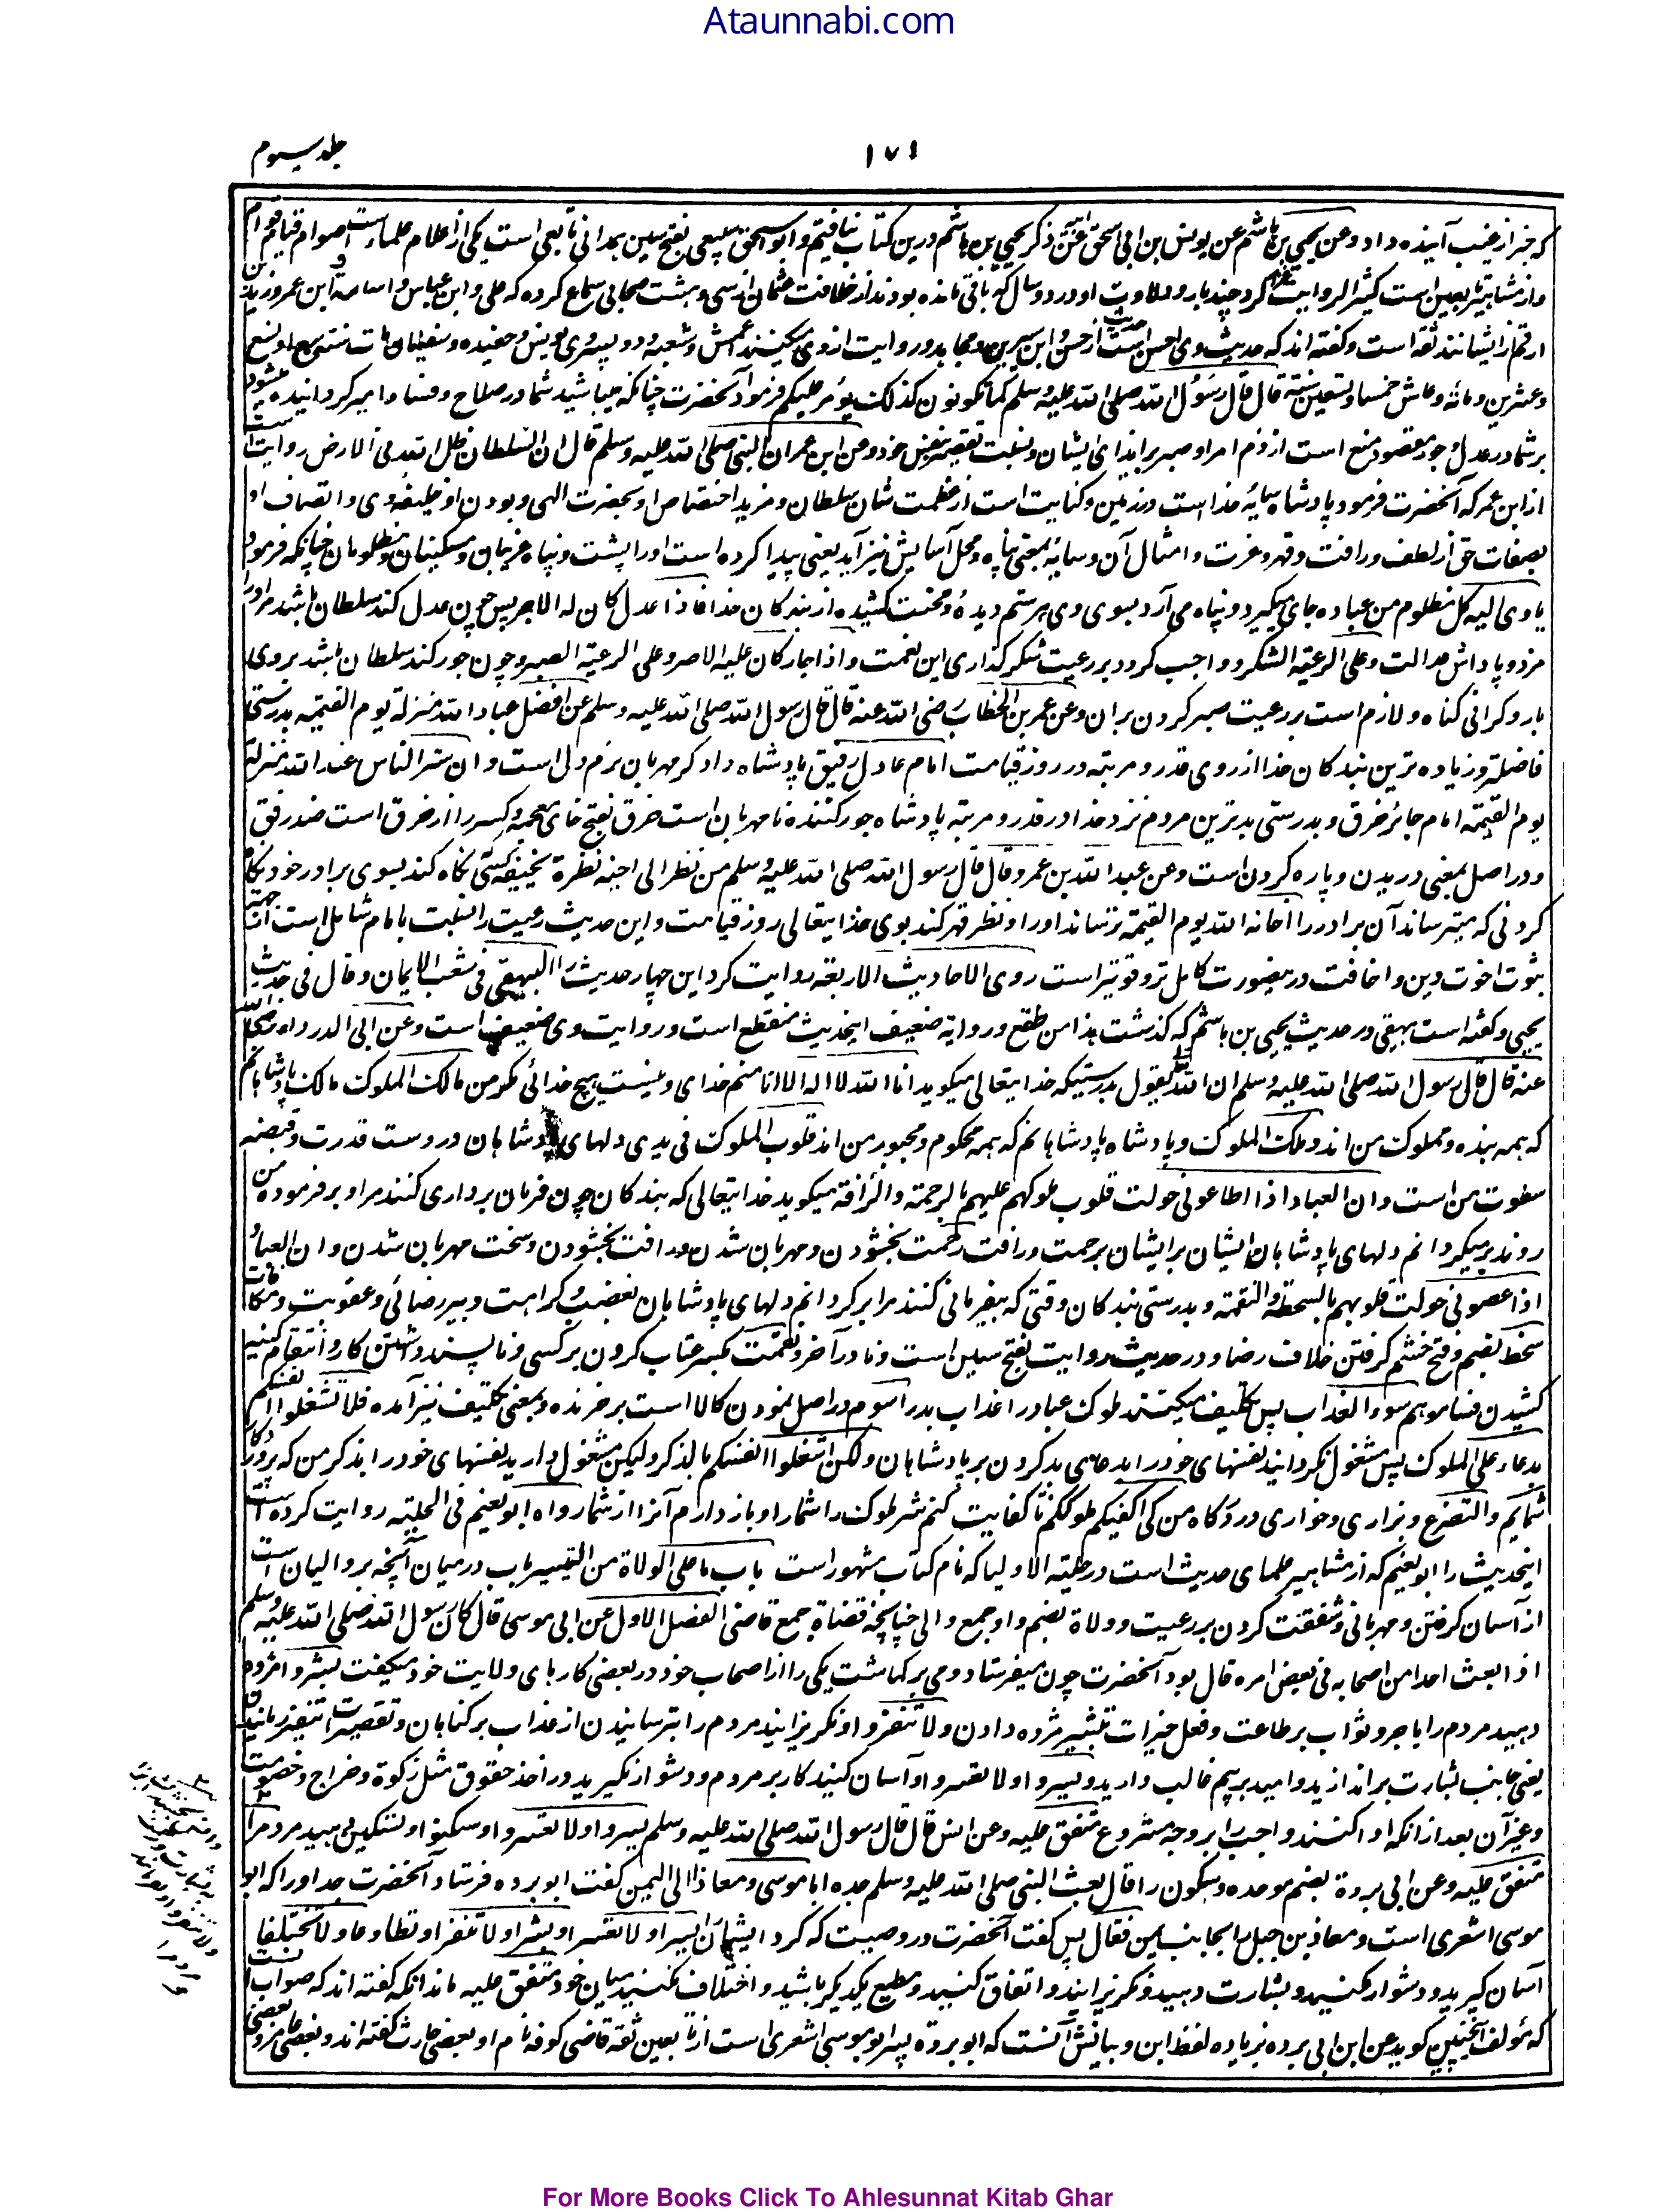 Ataunnabi.com
جلد سیوم
۱۷۱
که خبر از غیب آینده داد وعن یحیی بن هاشم عن یونس بن ابی اسحق عن ابیه ذکر یحیی بن هاشم درین کتاب نیافتیم و ابو اسحق سبیعی بفتح سین همدانی تابعی است یکی از اعلام علماء است صوام قوام
واز مشاهیر تابعین است کثیر الروایت کرد چند بار و ولادت او در دو سال که باقی مانده بودند از خلافت عثمان از سی و هشت صحابی سماع کرده که علی و ابن عباس و اسامه و ابن عمر و زید بن
ارقم ازیشانند ثقه است وگفته اند که حدیث وی احسن است از حسن و ابن سیرین و مجاهد و روایت از وی میکنند اعمش و شعبه و دو پسر وی یونس و حفیده و سفیانان مات سنة سبع او تسع
وعشرین ومائه وعاش خمسا وتسعین سنة قال قال رسول الله صلی الله علیه وسلم کما تکونون کذلک یؤمر علیکم فرمود آنحضرت چنانکه میباشید شما در صلاح و فساد امیر گردانیده میشود
بر شما در عدل و جور مقصود منع است از ذم امرا و صبر بر ایذای ایشان و نسبت تقصیر بنفس خود وعن ابن عمر ان النبی صلی الله علیه وسلم قال ان السلطان ظل الله فی الارض روایت است
از ابن عمر که آنحضرت فرمود پادشاه سایۀ خدا است در زمین و کنایت است از عظمت شان سلطان و مزید اختصاص او بحضرت الهی و بودن او خلیفۀ وی و اتصاف او
بصفات حق از لطف و رافت و قهر و عزت و امثال آن و سایه بمعنی پناه و محل آسایش نیز آید یعنی پیدا کرده است او را پشت و پناه غریبان و مسکینان و مظلومان چنانکه فرمود
یاوی الیه کل مظلوم من عباده جای میگیرد و پناه می آرد بسوی وی هر ستم دیده و محنت کشیده از بندگان خدا فاذا عدل کان له الاجر پس چون عدل کند سلطان باشد مر او را
مزد و پاداش عدالت وعلی الرعیة الشکر و واجب گردد بر رعیت شکر گذاری این نعمت واذا جار کان علیه الاصر وعلی الرعیة الصبر و چون جور کند سلطان باشد بر وی
بار و گرانی گناه و لازم است بر رعیت صبر کردن بران وعن عمر بن الخطاب رضی الله عنه قال قال رسول الله صلی الله علیه وسلم ان افضل عباد الله منزلة یوم القیمة بدرستی
فاضلتر و زیاده ترین بندگان خدا از روی قدر و مرتبه در روز قیامت امام عادل رفیق پادشاه دادگر مهربان نرم دل است وان شر الناس عند الله منزلة
یوم القیمة امام جائر خرق و بدرستی بدترین مردم نزد خدا در قدر و مرتبه پادشاه جور کننده نامهربان است خرق بفتح خای معجمه و کسر را از خرق است ضد رفق
و در اصل بمعنی دریدن و پاره کردن است وعن عبد الله بن عمرو قال قال رسول الله صلی الله علیه وسلم من نظر الی اخیه نظرة یخیفه کسی که نگاه کند بسوی برادر خود نگاه
کردنی که بترساند آن برادر را اخافه الله یوم القیمة بترساند او را و نظر قهر کند بوی خدا یتعالی روز قیامت و این حدیث رعیت را نسبت بامام شامل است از جهت
ثبوت اخوت دین و اخافت درینصورت کامل تر و قوی تر است روی الاحادیث الاربعة روایت کرد این چهار حدیث را البیهقی فی شعب الایمان وقال فی حدیث
یحیی وگفته است بیهقی در حدیث یحیی بن هاشم که گذشت هذا منقطع وروایه ضعیف اینحدیث منقطع است و روایت وی ضعیف است وعن ابی الدرداء رضی الله
عنه قال قال رسول الله صلی الله علیه وسلم ان الله تعالی یقول بدرستیکه خدا یتعالی میگوید انا الله لا اله الا انا منم خدای و نیست هیچ خدائی مگر من مالک الملوک مالک پادشاهانم
که همه بنده و مملوک من اند وملک الملوک و پادشاه پادشاهانم که همه محکوم و مجبور من اند قلوب الملوک فی یدی دلهای پادشاهان در دست قدرت و قبضه
سطوت من است وان العباد اذا اطاعونی حولت قلوب ملوکهم علیهم بالرحمة والرأفة میگوید خدا یتعالی که بندگان چون فرمان برداری کنند مرا و بر فرموده من
روند بر میگردانم دلهای پادشاهان ایشان بر ایشان برحمت و رافت رحمت بخشودن و مهربان شدن و رافت بخشودن و سخت مهربان شدن وان العباد
اذا عصونی حولت قلوبهم بالسخطة والنقمة و بدرستی بندگان وقتی که بیفرمانی کنند مرا بر گردانم دلهای پادشاهان بغضب و کراهت و بیرضائی و عقوبت و مکافات
سخط بضم و فتح خشم گرفتن خلاف رضا و در حدیث روایت بفتح سین است و تا در آخر و نقمت بکسر عتاب کردن بر کسی و ناپسند داشتن کار و انتقام کینه
کشیدن فساموهم سوء العذاب پس تکلیف میکنند ملوک عباد را عذاب بد را سوم در اصل نمودن کالا است بر خرنده و بمعنی تکلیف نیز آمده فلا تشغلوا انفسکم
بدعاء علی الملوک پس مشغول نگردانید نفسهای خود را بدعای بد کردن بر پادشاهان ولکن اشغلوا انفسکم بالذکر و لیکن مشغول دارید نفسهای خود را بذکر من که پروردگار
شمایم والتضرع و بزاری و خواری در درگاه من کی اکفیکم ملوککم تا کفایت کنم شر ملوک را شما را و باز دارم آنرا از شما رواه ابو نعیم فی الحلیة روایت کرده است
اینحدیث را ابو نعیم که از مشاهیر علمای حدیث است در حلیة الاولیا که نام کتاب مشهور است باب ما علی الولاة من التیسیر باب در میان آنچه بر والیان است
از آسان گرفتن و مهربانی و شفقت کردن بر رعیت و ولاة بضم واو جمع والی چنانچه قضاة جمع قاضی الفصل الاول عن ابی موسی قال کان رسول الله صلی الله علیه وسلم
اذا بعث احدا من اصحابه فی بعض امره قال بود آنحضرت چون میفرستاد و می برگماشت یکی را از اصحاب خود در بعضی کارهای ولایت خود میگفت بشروا مژده
دهید مردم را باجر و ثواب بر طاعت و فعل خیرات تبشیر مژده دادن ولا تنفروا و نگریزانید مردم را بترسانیدن از عذاب بر گناهان و تقصیرات تنفیر رمانیدن
یعنی جانب بشارت بر اندازید و امید بر بیم غالب دارید ویسروا ولا تعسروا و آسان کنید کار بر مردم و دشوار نگیرید در اخذ حقوق مثل زکوة و خراج و خصومت
و غیر آن بعد از انکه ادا کنند واجب را بر وجه مشروع متفق علیه وعن انس قال قال رسول الله صلی الله علیه وسلم یسروا ولا تعسروا وسکنوا و تسکین دهید مردم را
متفق علیه وعن ابی بردة بضم موحده و سکون را قال بعث النبی صلی الله علیه وسلم جده ابا موسی ومعاذا الی الیمن گفت ابو برده فرستاد آنحضرت جد او را که ابو
موسی اشعری است و معاذ بن جبل را بجانب یمن فقال پس گفت آنحضرت در وصیت که کرد ایشان را یسرا ولا تعسرا وبشرا ولا تنفرا وتطاوعا ولا تختلفا
آسان گیرید و دشوار مکنید و بشارت دهید و مگریزانید و اتفاق کنید و مطیع یکدیگر باشید و اختلاف نکنید میان خود متفق علیه ماندانکه گفته اند که صواب آنست
که مؤلف اینچنین گوید عن ابن ابی برده بزیاده لفظ ابن و بیانش آنست که ابو بردة پسر ابو موسی اشعری است از تابعین ثقه قاضی کوفه نام او بعضی حارث گفته اند و بعضی عامر و بعضی
For More Books Click To Ahlesunnat Kitab Ghar